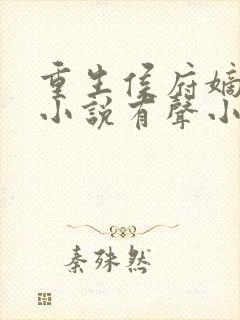 重生侯府嫡
小說有聲小
秦殊然